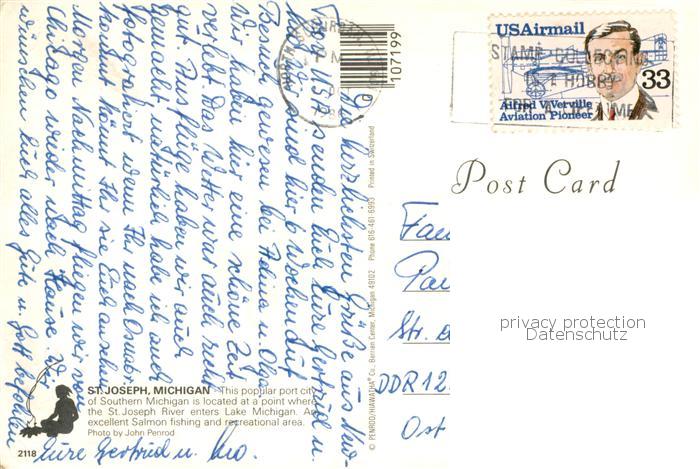 Die herzlichsten Grüße aus
U.S.A senden Euch Eure Gertrud u.
Wir sind hier Wochen auf
Besuch gewesen bei u. Olga
Wir haben hier eine schöne Zeit
verlebt. Das Wetter war auch recht
gut. Ausflüge haben wir auch
gemacht natürlich hab ich auch
fotografiert wenn Ihr nach
kommt könnt Ihr sie Euch ansehen
Morgen Nachmittag fliegen wir von
Chicago wieder nach Hause. Wir
wünschen Euch alles Gute u. Gott befohlen
Eure Gertrud u.
ST. JOSEPH, MICHIGAN - This popular port city
of Southern Michigan is located at a point where
the St. Joseph River enters Lake Michigan. An
excellent Salmon fishing and recreational area.
Photo by John Penrod
2118
107199
© PENROD/HIAWATHA Co., Berrien Center, Michigan 49102 Phone 616-461-6993 Printed in Switzerland
USAirmail
33
Alfred V. Verville
Aviation Pioneer
STAMP COLLECTING
A HOBBY
FOR A LIFETIME
Post Card
Str.
DDR 12
Ost
privacy protection
Datenschutz